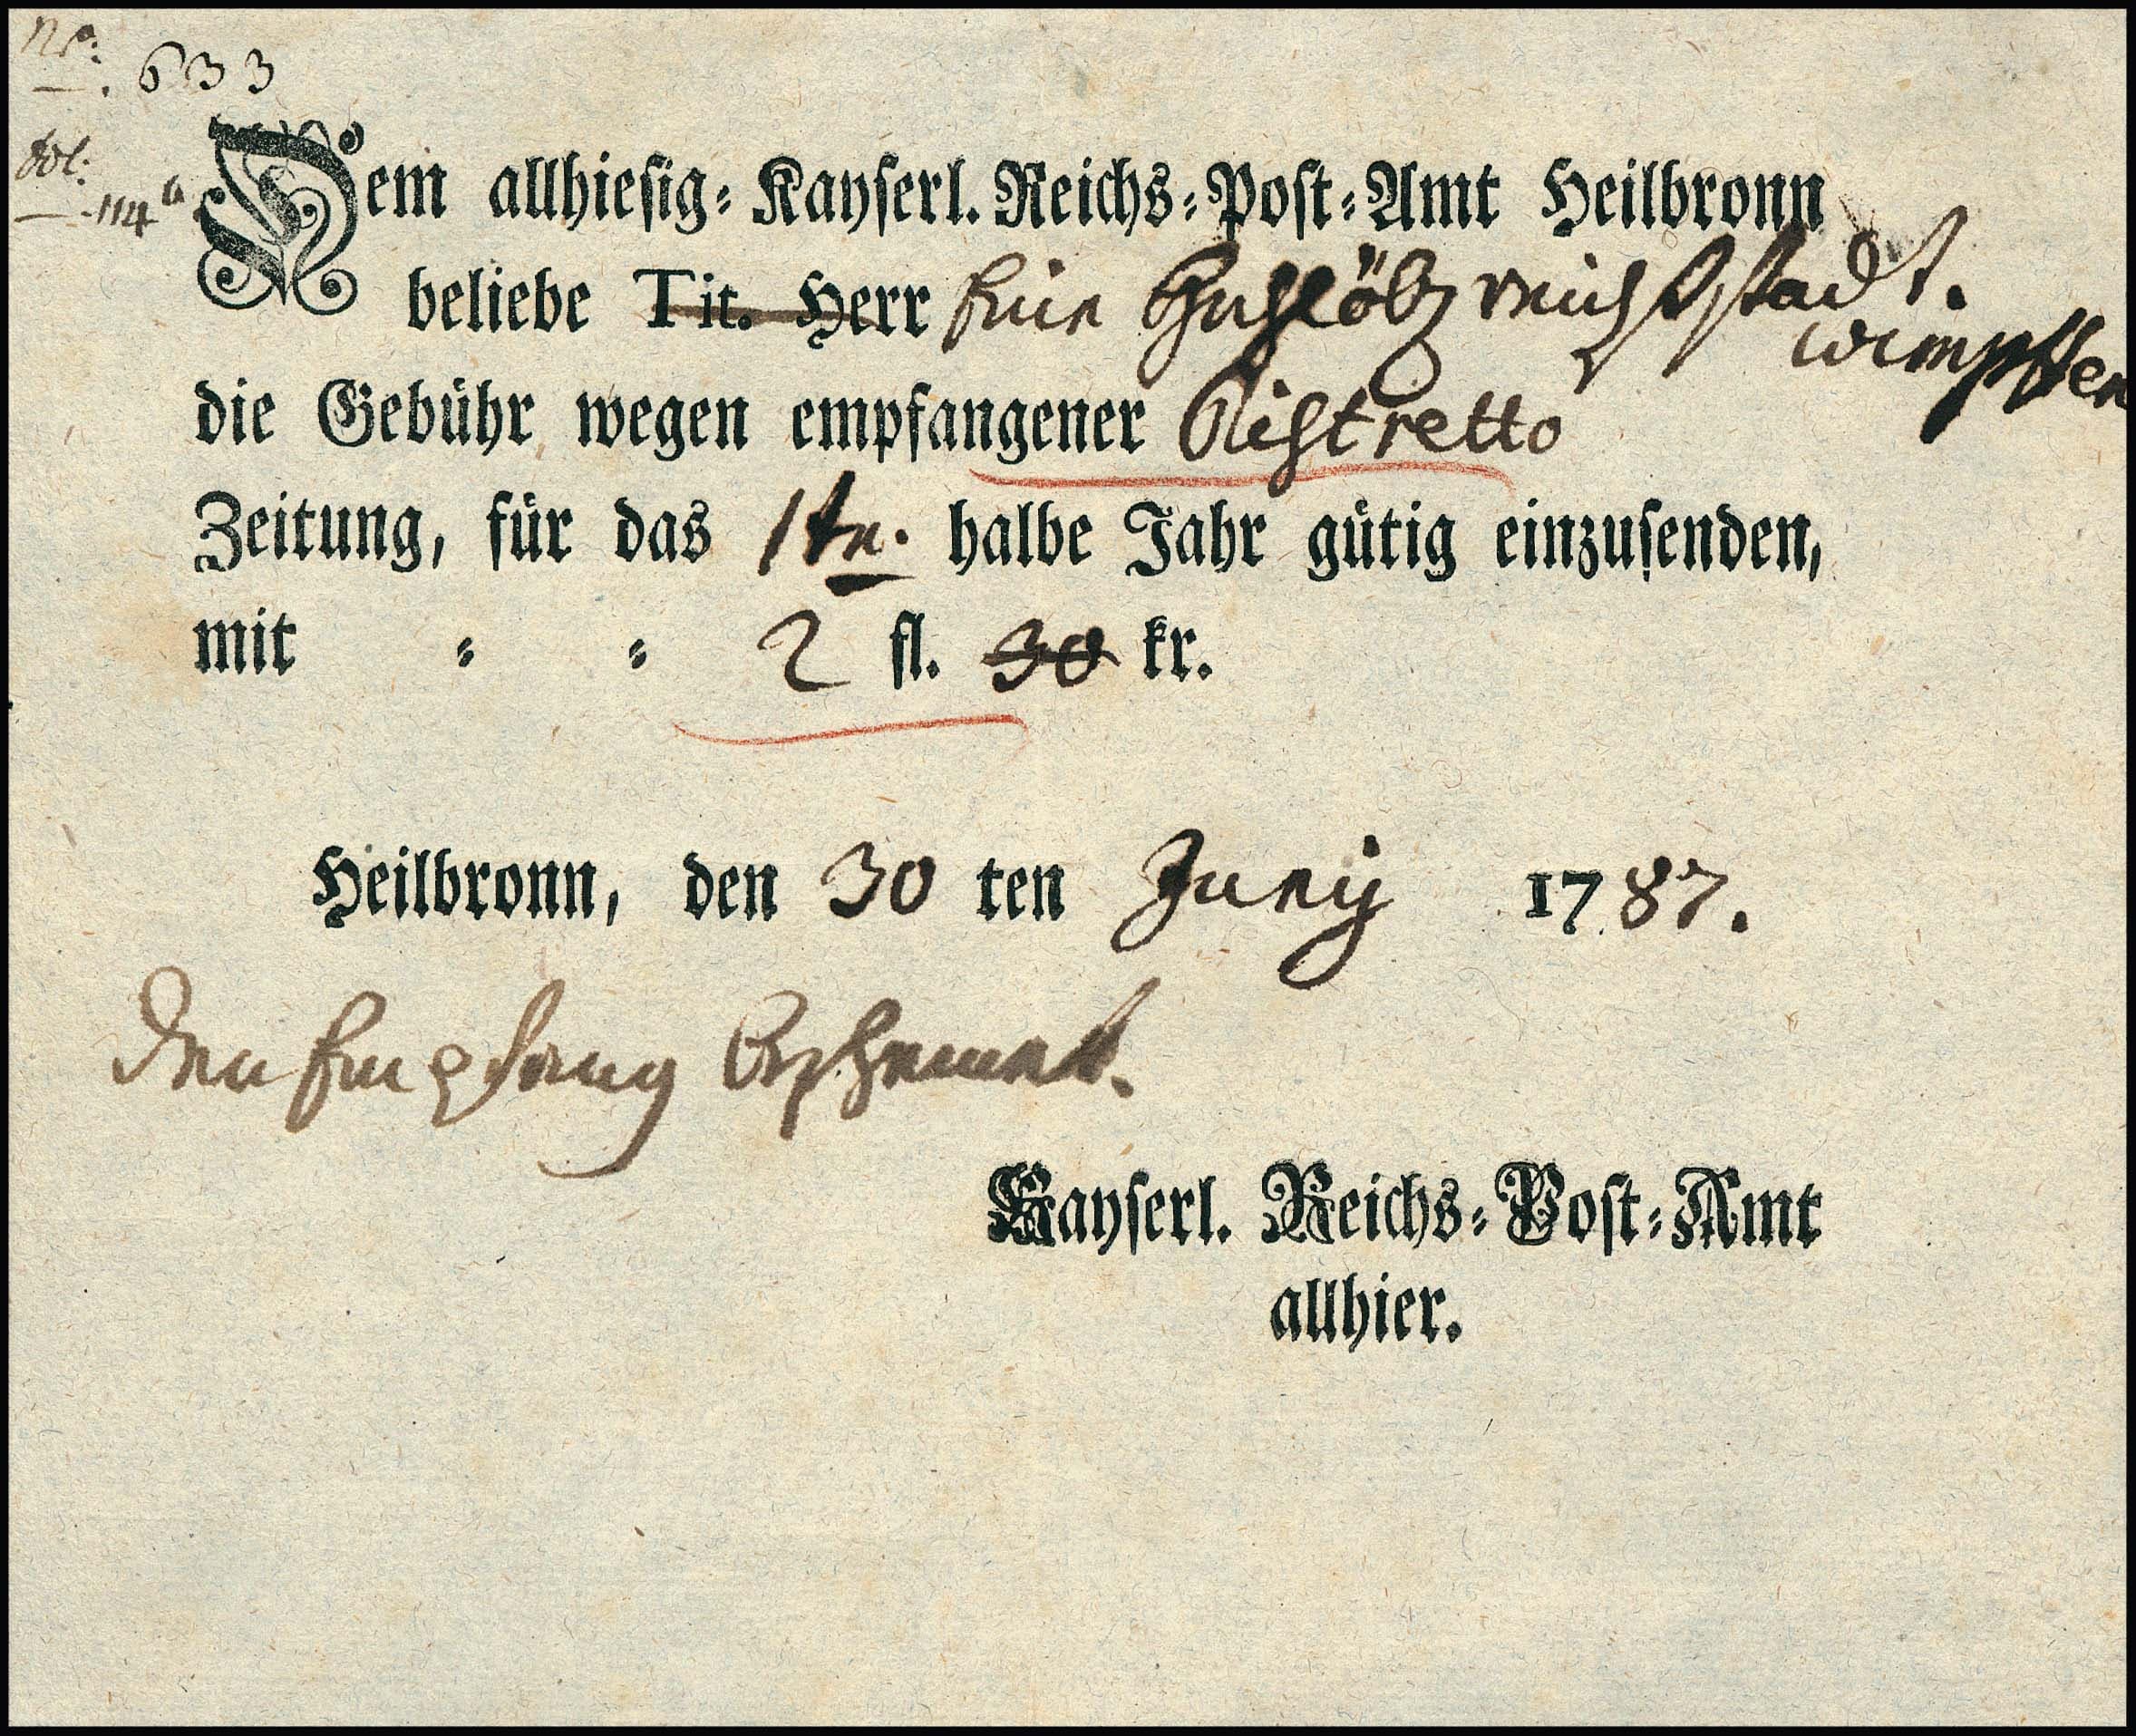 Nro. 633
fol. 114 a
Dem allhiesig⸗Kayserl. Reichs⸗Post⸗Amt Heilbronn
beliebe Tit. Herr Eine Hochlöbl. reichsstadt.
wimpffen
die Gebühr wegen empfangener Ristretto
Zeitung, für das 1te. halbe Jahr gütig einzusenden,
mit ⸗ ⸗ 2 fl. 30 kr.
Heilbronn, den 30 ten Juny 1787.
Den Empfang bescheint.
Kayserl. Reichs⸗Post⸗Amt
allhier.